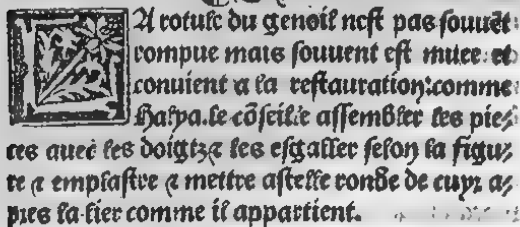 LA rotule du genoil nest pas souuēt
rompue mais souuent est muee: et
conuient a la restauration: comme
Halya. le cōseille assembler les pie⸗
ces auec les doigtz ⁊ les esgaller selon la figu⸗
re ⁊ emplastre ⁊ mettre astelle ronde de cuyr a⸗
pres la lier comme il appartient.